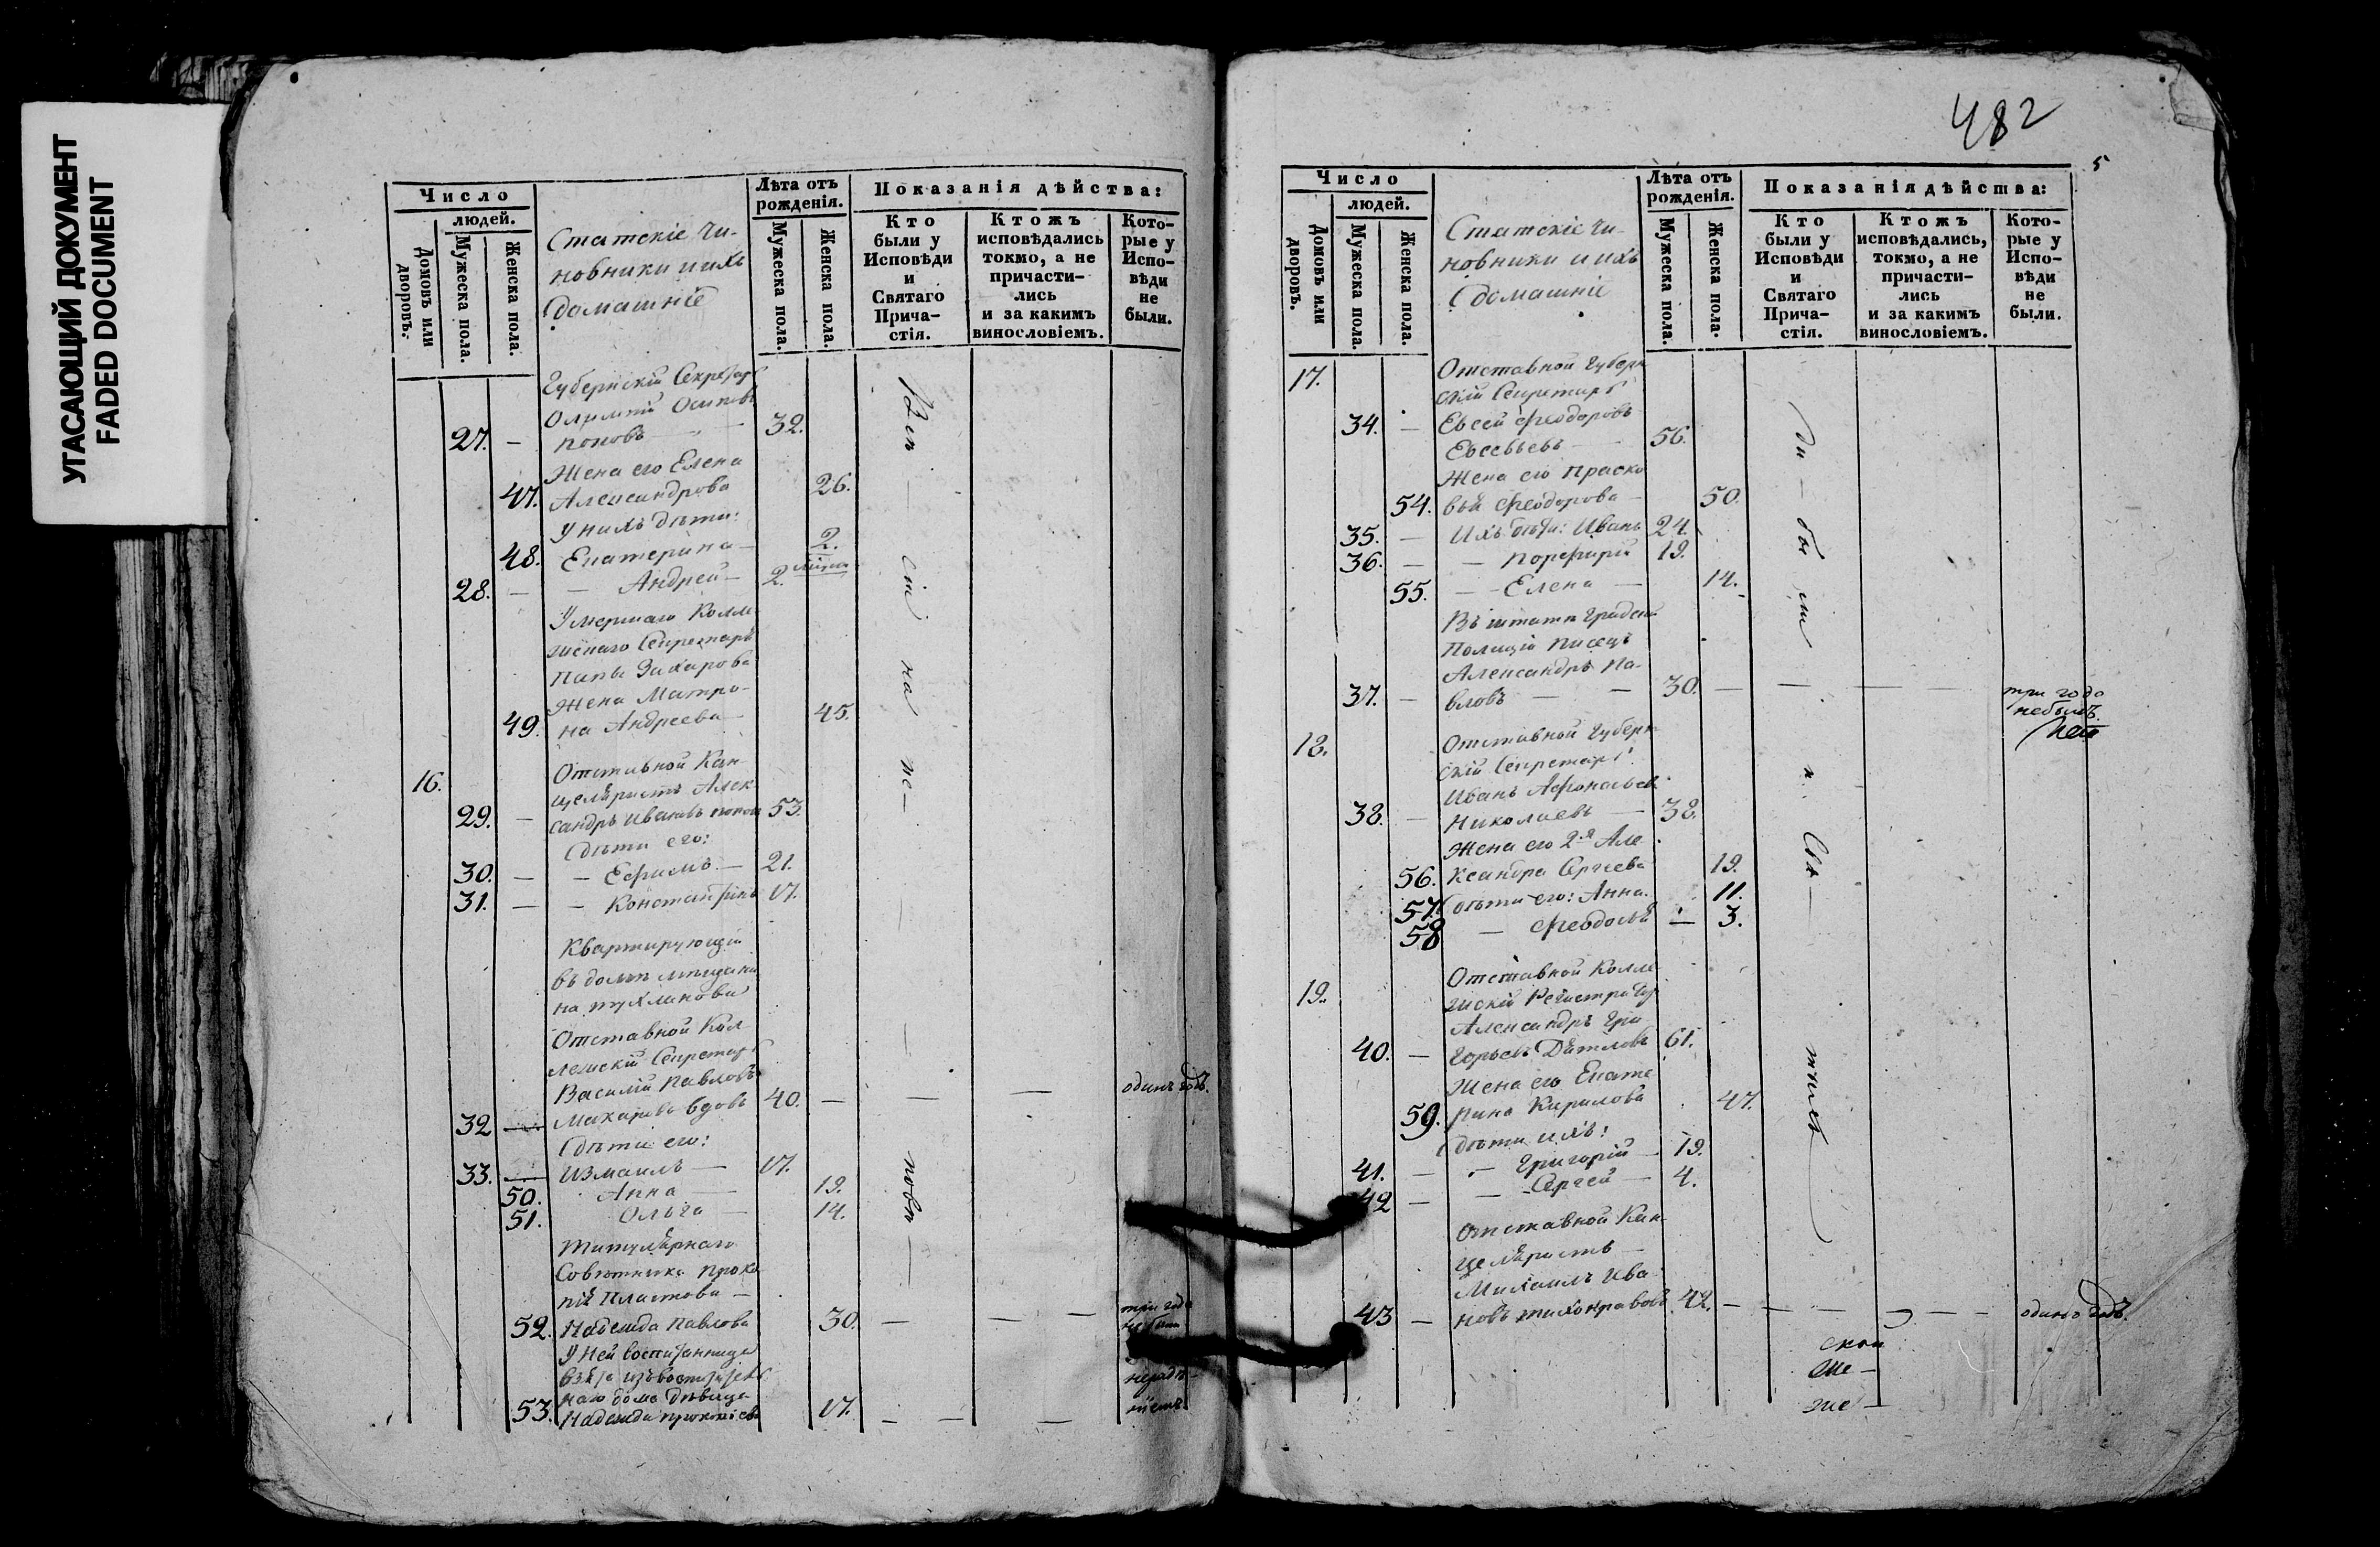 УГАСАЮЩИЙ ДОКУМЕНТ
FADED DOCUMENT
Число
людей.
Домовъ или дворовъ.
Мужеска пола.
Женска пола.
Статскіе Чи-
новники и ихъ
домашніе
Лѣта отъ
рожденія.
Мужеска пола.
Женска пола.
Показанія дѣйства:
Кто
были у
Исповѣди
и
Святаго
Прича-
стія.
Ктожъ
исповѣдались
токмо, а не
причасти-
лись
и за какимъ
винословіемъ.
Кото-
рые у
Испо-
вѣди
не
были.
Губернскій Секретарь
Осиповъ
27. — Поповъ — 32.
Жена его Елена
47. Александрова 26.
У нихъ дѣти:
48. Екатерина — 2.
28. — — Андрей — 2.
Умершаго Колле
жскаго Секретаря
Захарова
Жена Матро-
49. на Андреева — 45.
16. Отставной Кан-
целяристъ Алек-
29. — сандръ Ивановъ Поповъ 53.
дѣти его:
30. — — Ефимъ — 21.
31. — — Константинъ 17.
Квартирующій
въ домѣ мѣщани
на
Отставной Кол-
лежскій Секретарь
Василій Павловъ
32 — Макаровъ вдовъ 40. — — — одинъ годъ.
дѣти его:
33. — Измаилъ — 17.
50. Анна — 19.
51. Ольга — 14.
Титулярнаго
Совѣтника Проко
пія Платова —
52. Надежда Павлова 30. — — — три года
У ней воспитанница
взята изъ воспитатель
наго дома дѣвица
53. Надежда Прокопіева 17. — — —
482
5
Число
людей.
Домовъ или дворовъ.
Мужеска пола.
Женска пола.
Статскіе Чи-
новники и ихъ
домашніе
Лѣта отъ
рожденія.
Мужеска пола.
Женска пола.
Показанія дѣйства:
Кто
были у
Исповѣди
и
Святаго
Прича-
стія.
Ктожъ
исповѣдались,
токмо, а не
причасти-
лись
и за какимъ
винословіемъ.
Кото-
рые у
Испо-
вѣди
не
были.
17. Отставной Губерн
скій Секретарь
34. — Евсей Феодоровъ
Евсевьевъ — 56.
Жена его Праско
54. вья Феодорова — 50.
35. — Ихъ дѣти: Иванъ 24.
36. — — Порфирій 19.
55. — — Елена — 14.
Въ штатѣ Градской
Полиціи писецъ
Александръ Па-
37. — вловъ — — 30. — — — — три года
небылъ.
18. Отставной Губерн
скій Секретарь
Иванъ Афонасьевъ
38. — Николаевъ — 38.
Жена его 2я Але
56. ксандра Сергеева 19.
57. дѣти его: Анна. 11.
58 — Феодосья — 3.
19. Отставной Колле
жскій Регистраторъ
Александръ Гри
40. — горьевъ Дятловъ 61.
Жена его Екате
59. рина Кирилова 47.
дѣти ихъ:
41. — — Григорій — 19.
42 — — Сергей — 4.
Отставной Кан-
целяристъ —
Михаилъ Ива
43 — новъ Тихонравовъ 42. — — — — — — одинъ годъ.